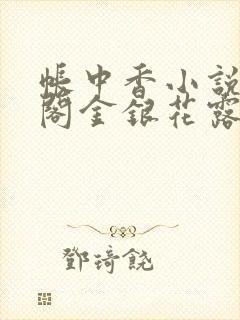 帳中香小說
閣金銀花露
鄧琦饒